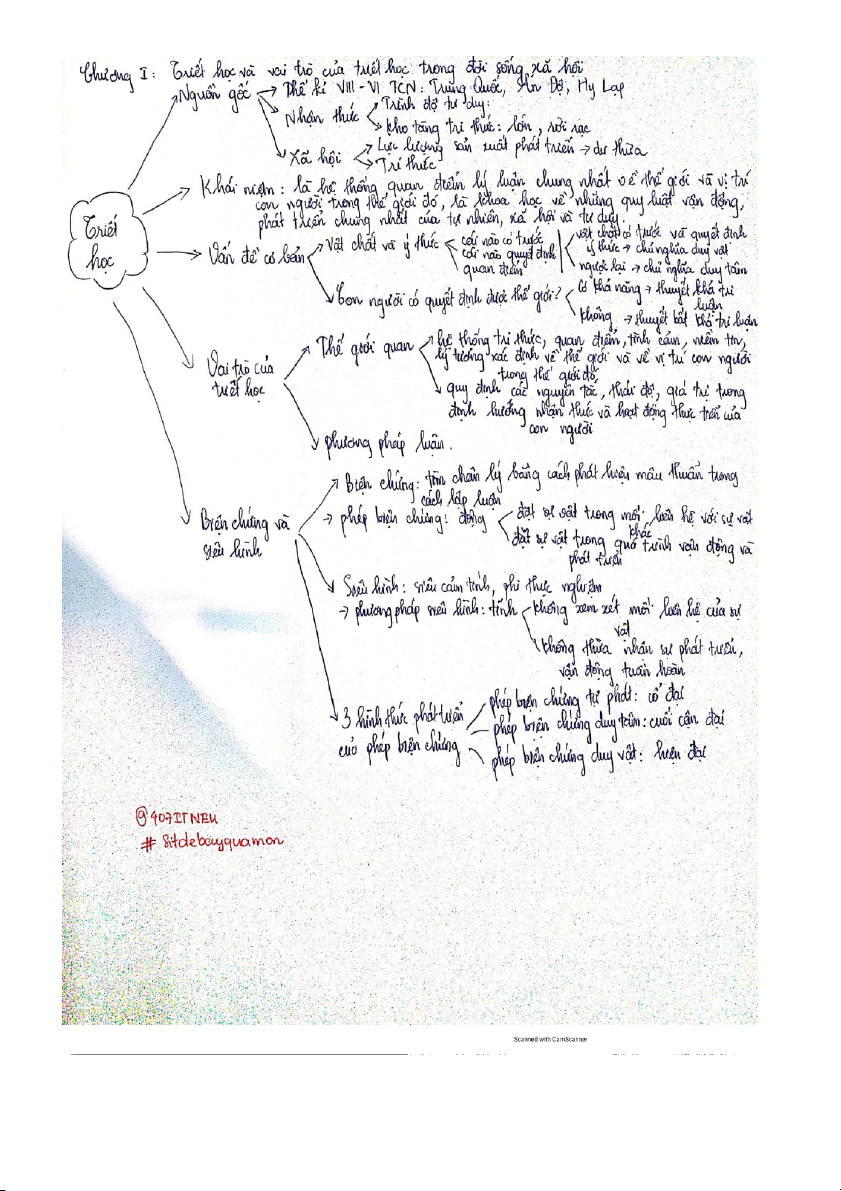 Chương I: Triết học và vai trò của triết học trong đời sống xã hội
Nguồn gốc → Thế kỉ VIII - VI TCN: Trung Quốc, Ấn Độ, Hy Lạp
Nhận thức
Trình độ tư duy
kho tàng tri thức: lớn, rời rạc
Xã hội
Lực lượng sản xuất phát triển → dư thừa
Trí thức
Triết học
Khái niệm: là hệ thống quan điểm lý luận chung nhất về thế giới và vị trí
con người trong thế giới đó, là khoa học về những quy luật vận động,
phát triển chung nhất của tự nhiên, xã hội và tư duy.
Vấn đề cơ bản
Vật chất và ý thức
cái nào có trước
cái nào quyết định
quan điểm
vật chất có trước và quyết định
ý thức → chủ nghĩa duy vật
ngược lại → chủ nghĩa duy tâm
Con người có quyết định được thế giới?
Có khả năng → thuyết khả tri
luận
không → thuyết bất khả tri luận
Vai trò của
triết học
Thế giới quan
hệ thống tri thức, quan điểm, tình cảm, niềm tin,
lý tưởng xác định về thế giới và về vị trí con người
trong thế giới đó,
quy định các nguyên tắc, thái độ, giá trị trong
định hướng nhận thức và hoạt động thực tiễn của
con người
phương pháp luận.
Biện chứng và
siêu hình
Biện chứng: tìm chân lý bằng cách phát hiện mâu thuẫn trong
cách lập luận
→ phép biện chứng: động
đặt sự vật trong mối liên hệ với sự vật
khác
đặt sự vật trong quá trình vận động và
phát triển
Siêu hình: siêu cảm tính, phi thực nghiệm
→ phương pháp siêu hình: tĩnh
không xem xét mối liên hệ của sự
vật
không thừa nhận sự phát triển,
vận động tuần hoàn
3 hình thức phát triển
của phép biện chứng
phép biện chứng tự phát: cổ đại
phép biện chứng duy tâm: cuối cận đại
phép biện chứng duy vật: hiện đại
@407ITNEU
# Sitdebayquamon
Scanned with CamScanner